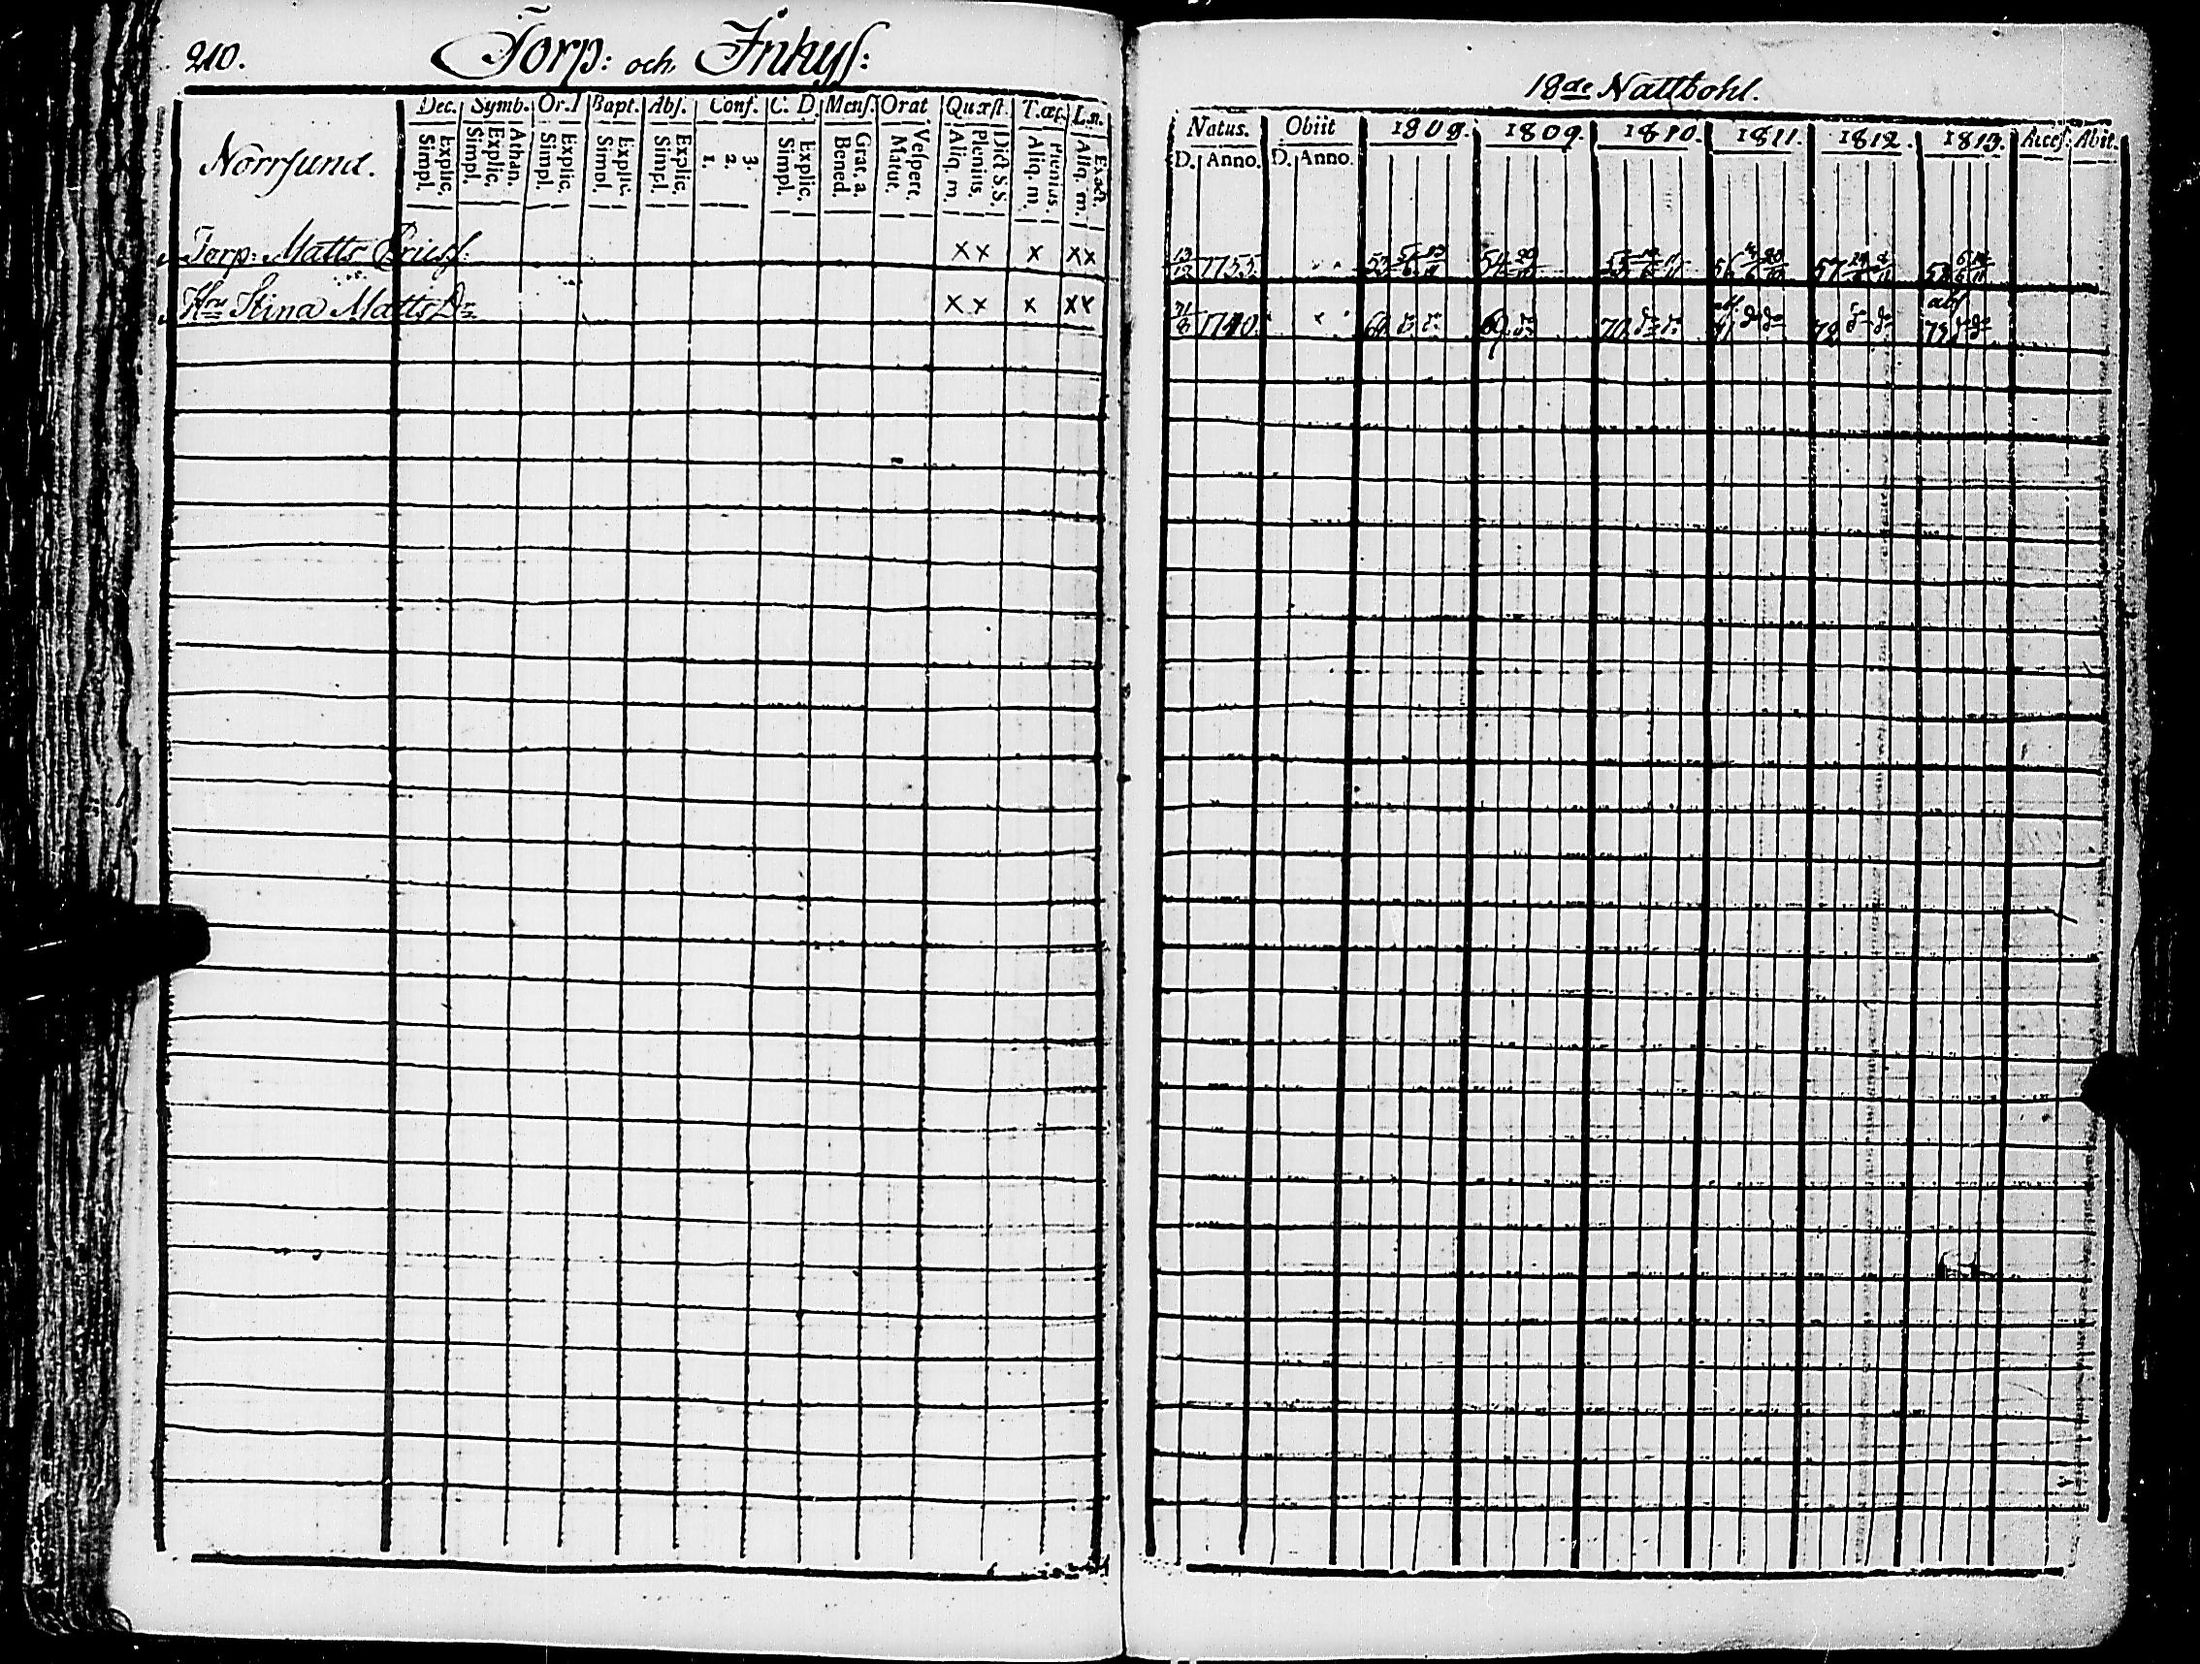 210. Torp: och Inhys:
18de Nattbohl.
Dec. Symb. Or.D Bapt. Abs. Conf. C. D. Mens. Orat Quæst. T.œc. L.n.
Simpl. Explic. Simpl. Explic. Athan. Simpl. Explic. Simpl. Explic. Simpl. Explic. 1. 2. 3. Simpl. Explic. Bened. Grat, a. Matut. Vespert. Aliq. m. Plenius. Dict. S.S. Aliq. m. Plenius. Aliq. m. Exact.
Natus. Obiit 1808. 1809. 1810. 1811. 1812. 1813. Acces. Abit.
D. Anno. D. Anno.
Norrsund.
Torp: Matts Ericss: x x x x x 13/12 1755 53 54 55 56 57 58
Hu Stina Matts Dr x x x x x 1740. 69. 70. 71 72 73
abs